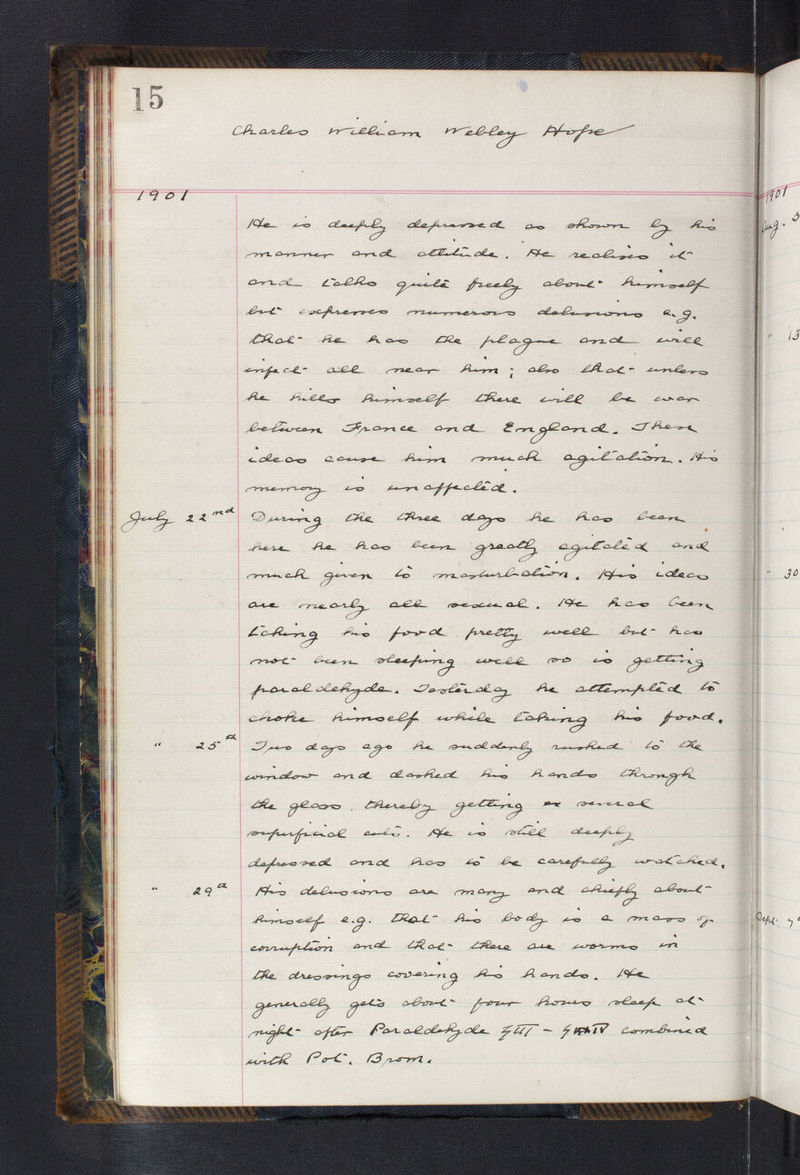 15
Charles William Webley Hope
1901
He is deeply depressed as shown by his
manner and attitude. He realises it
and talks quite freely about himself
but expresses numerous delusions e.g.
that he has the plague and will
infect all near him; also that unless
he kills himself there will be war
between France and England. These
ideas cause him much agitation. His
memory is unaffected.
July 22nd During the three days he has been
here he has been greatly agitated and
much given to masturbation. His ideas
are nearly all sexual. He has been
taking his food pretty well but has
not been sleeping well so is getting
paraldehyde. Yesterday he attempted to
choke himself while taking his food.
" 25th Two days ago he suddenly rushed to the
window and dashed his hands through
the glass, thereby getting several
superficial cuts. He is still deeply
depressed and has to be carefully watched.
" 29th His delusions are many and chiefly about
himself e.g. that his body is a mass of
corruption and that there are worms in
the dressings covering his hands. He
generally gets about four hours sleep at
night after Paraldehyde ʒIII - ʒIV combined
with Pot. Brom.
1901
Aug. 5
" 13
" 30
Sept. 7